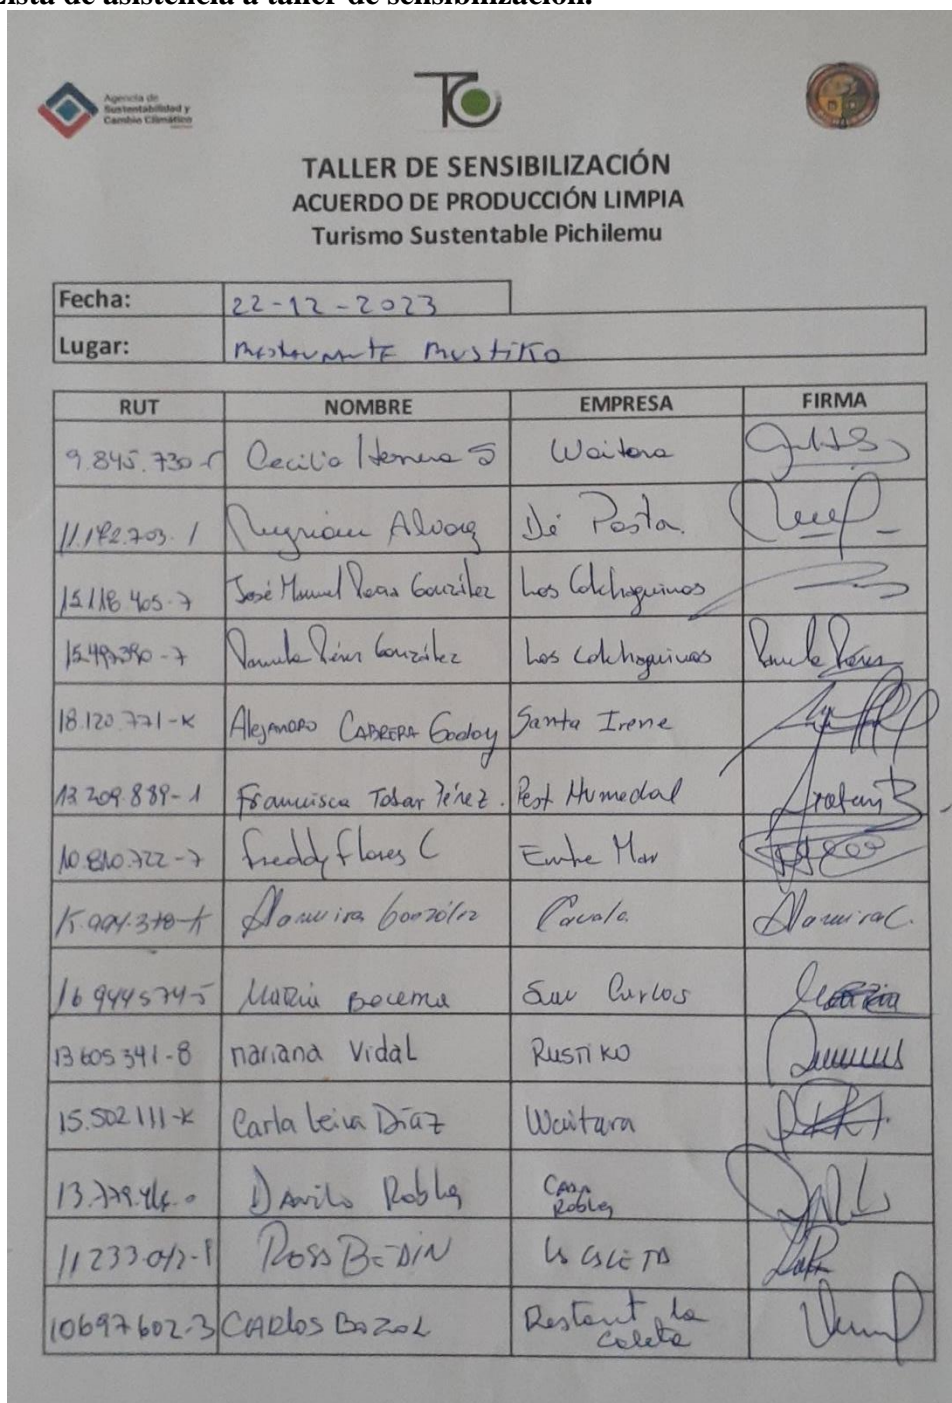 Lista de asistencia a taller de sensibilización.
Agencia de
Sustentabilidad y
Cambio Climático
TALLER DE SENSIBILIZACIÓN
ACUERDO DE PRODUCCIÓN LIMPIA
Turismo Sustentable Pichilemu
Fecha: 22-12-2023
Lugar: Rustiko
RUT NOMBRE EMPRESA FIRMA
9.845.730- Cecilia Herrera S Waitara
Alvarez De Pasta.
15.118.405-7 José Manuel González Los Colchaguinos
-7 Pamela Pérez González Los Colchaguinos Pamela Pérez
18.120.771-K Alejandro CABRERA Godoy Santa Irene
13.209.889-1 Francisca Tobar Pérez. Rest Humedal
10.810.722-7 Freddy Flores C Entre Mar
González
16944574-5 María Becerra San Carlos
13605341-8 nariana Vidal RUSTIKO
15.502111-K Carla Leiva Díaz Waitara
Danilo Robles CASA
Robles
11233.042- Ross BEDIN LA CALETA
10697602-3 CARLOS Restant La
Caleta